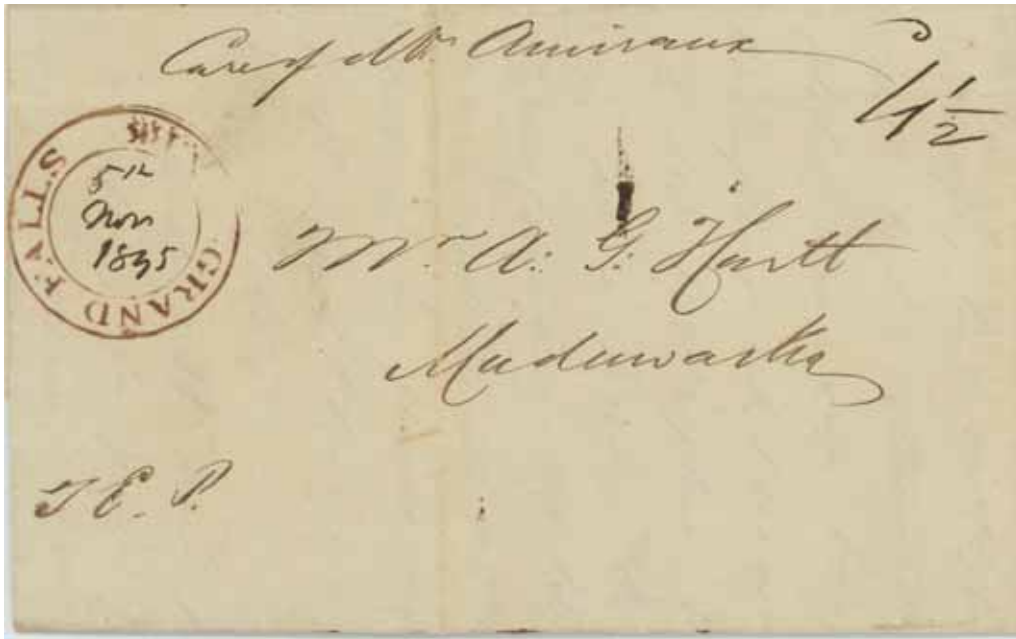 Care of Mr. Amiraux
4 1/2
GRAND FALLS
5th
Nov
1845
Mr. A: G: Hartt
Maduwaska
J. E. P.